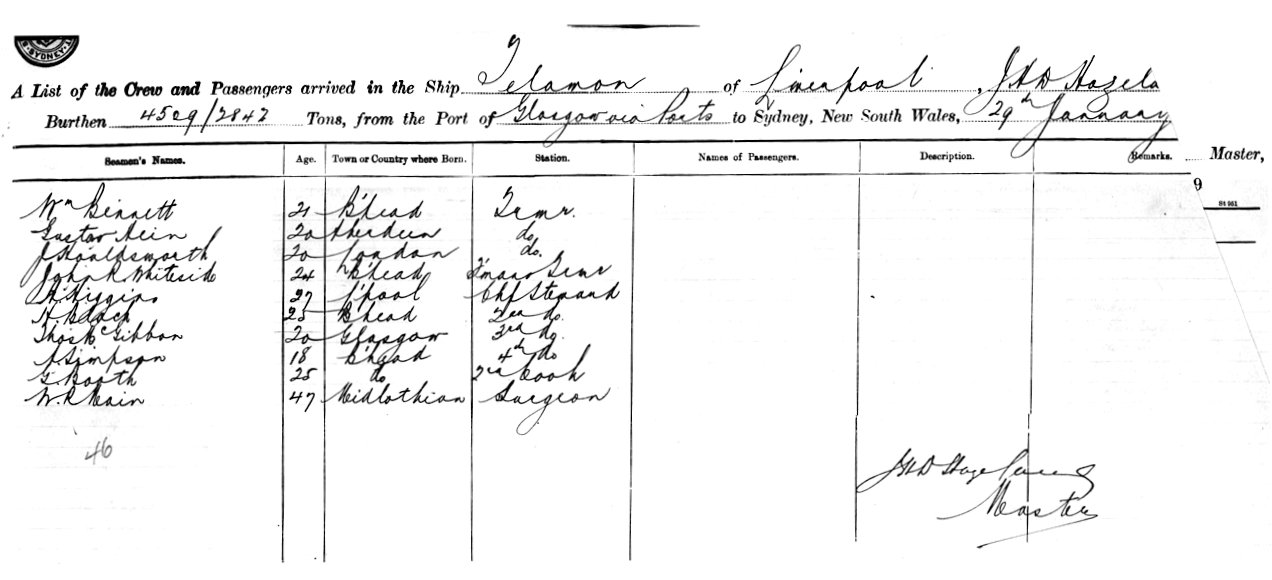 SYDNEY
A List of the Crew and Passengers arrived in the Ship Telamon of Liverpool , J H D Hazela
Burthen 4509/2842 Tons, from the Port of Glasgow via Ports to Sydney, New South Wales, 29th January
Seamen's Names. Age. Town or Country where Born. Station. Names of Passengers. Description. Remarks. Master,
9
St 951
Wm Bennett 21 B'head Frmr.
Gustav Hein 20 Aberdeen do
J Houldsworth 20 London do.
John R. Whiteside 24 B'head Frmr
H. Higgins 27 L'pool Chf Steward
H. 25 B'head 2nd do.
Thos McGibbon 20 Glasgow 3rd do.
A Simpson 18 B'head 4th do
G. Booth 25 do 2nd Cook
W. R Main 47 Midlothian Surgeon
46
J H D
Master